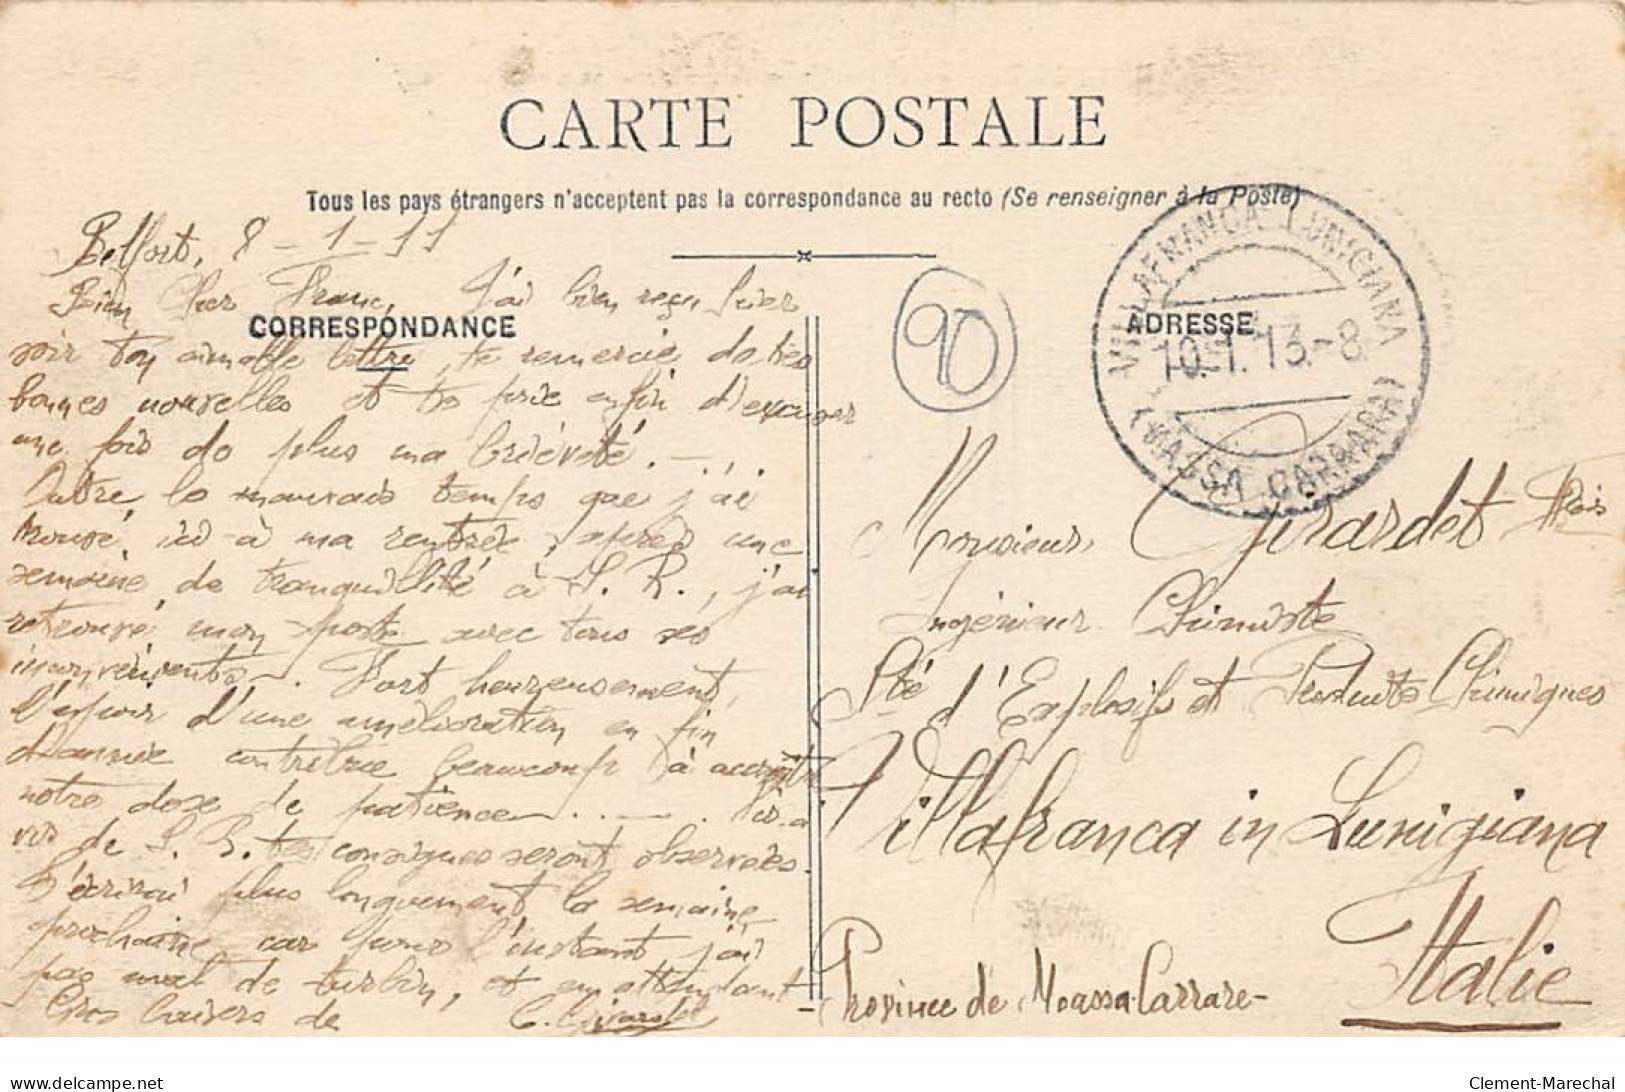 CARTE POSTALE
Tous les pays étrangers n'acceptent pas la correspondance au recto (Se renseigner à la Poste)
Belfort, 8-1-11
Bien Cher Franc, J'ai bien reçu hier
CORRESPONDANCE
soir ton aimable lettre, te remercie de tes
bonnes nouvelles et te prie enfin d'excuser
une fois de plus ma brièveté.
Outre le mauvais temps que j'ai
trouvé ici à ma rentrée, après une
semaine de tranquillité à S. R., j'ai
retrouvé mon poste avec tous ses
inconvénients. Fort heureusement,
l'espoir d'une amélioration en fin
d'année contribue beaucoup à
notre dose de patience Vis-à
vis de S. R. tes consignes seront observées.
J'écrirai plus longuement la semaine
prochaine car pour l'instant j'ai
pas mal de turbin, et en attendant
Gros baisers de C. Girardet
90
VILLAFRANCA LUNIGIANA
ADRESSE
10.1.13.-8
(MASSA CARRARA)
Monsieur Girardet Frçois
Ingénieur Chimiste
Sté d'Explosifs et Produits Chimiques
Villafranca in Lunigiana
Italie
- Province de Massa-Carrare -
delcampe.net
Clement-Marechal